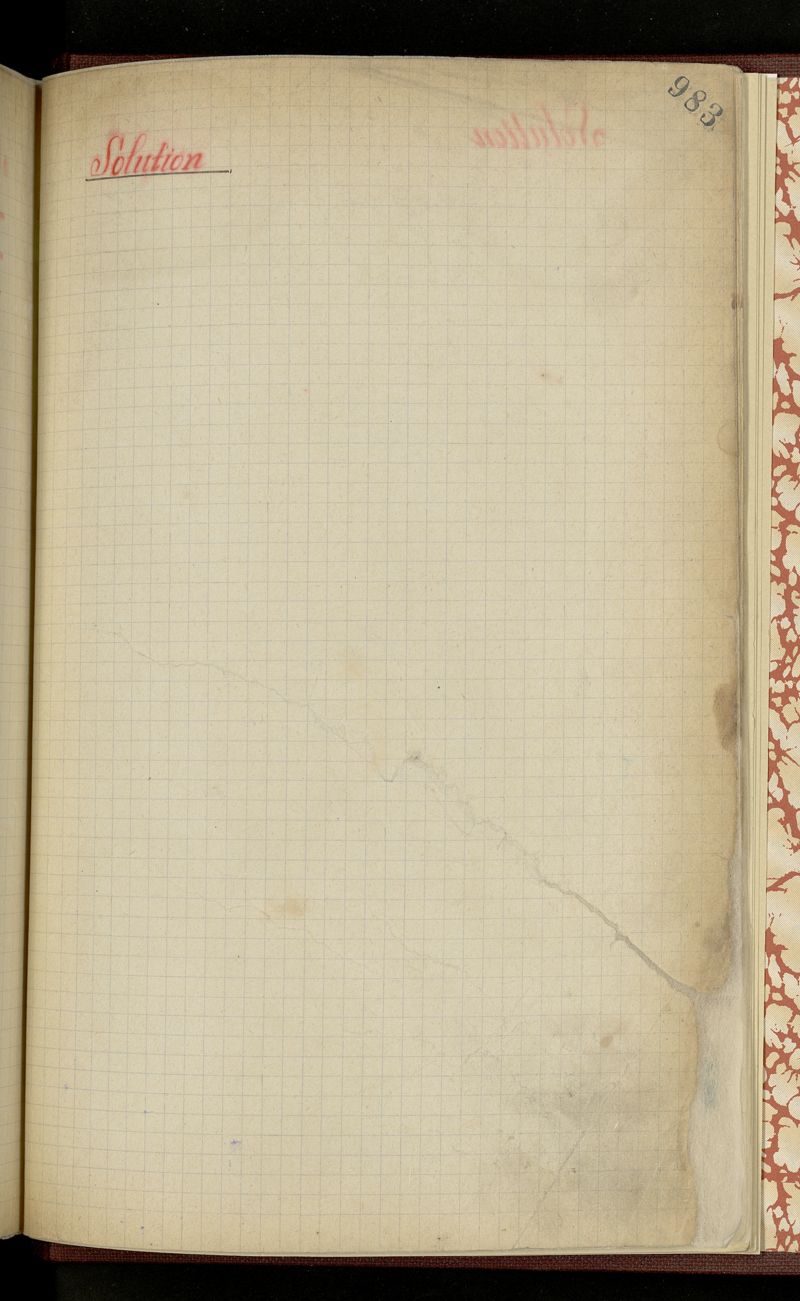 983
Solution